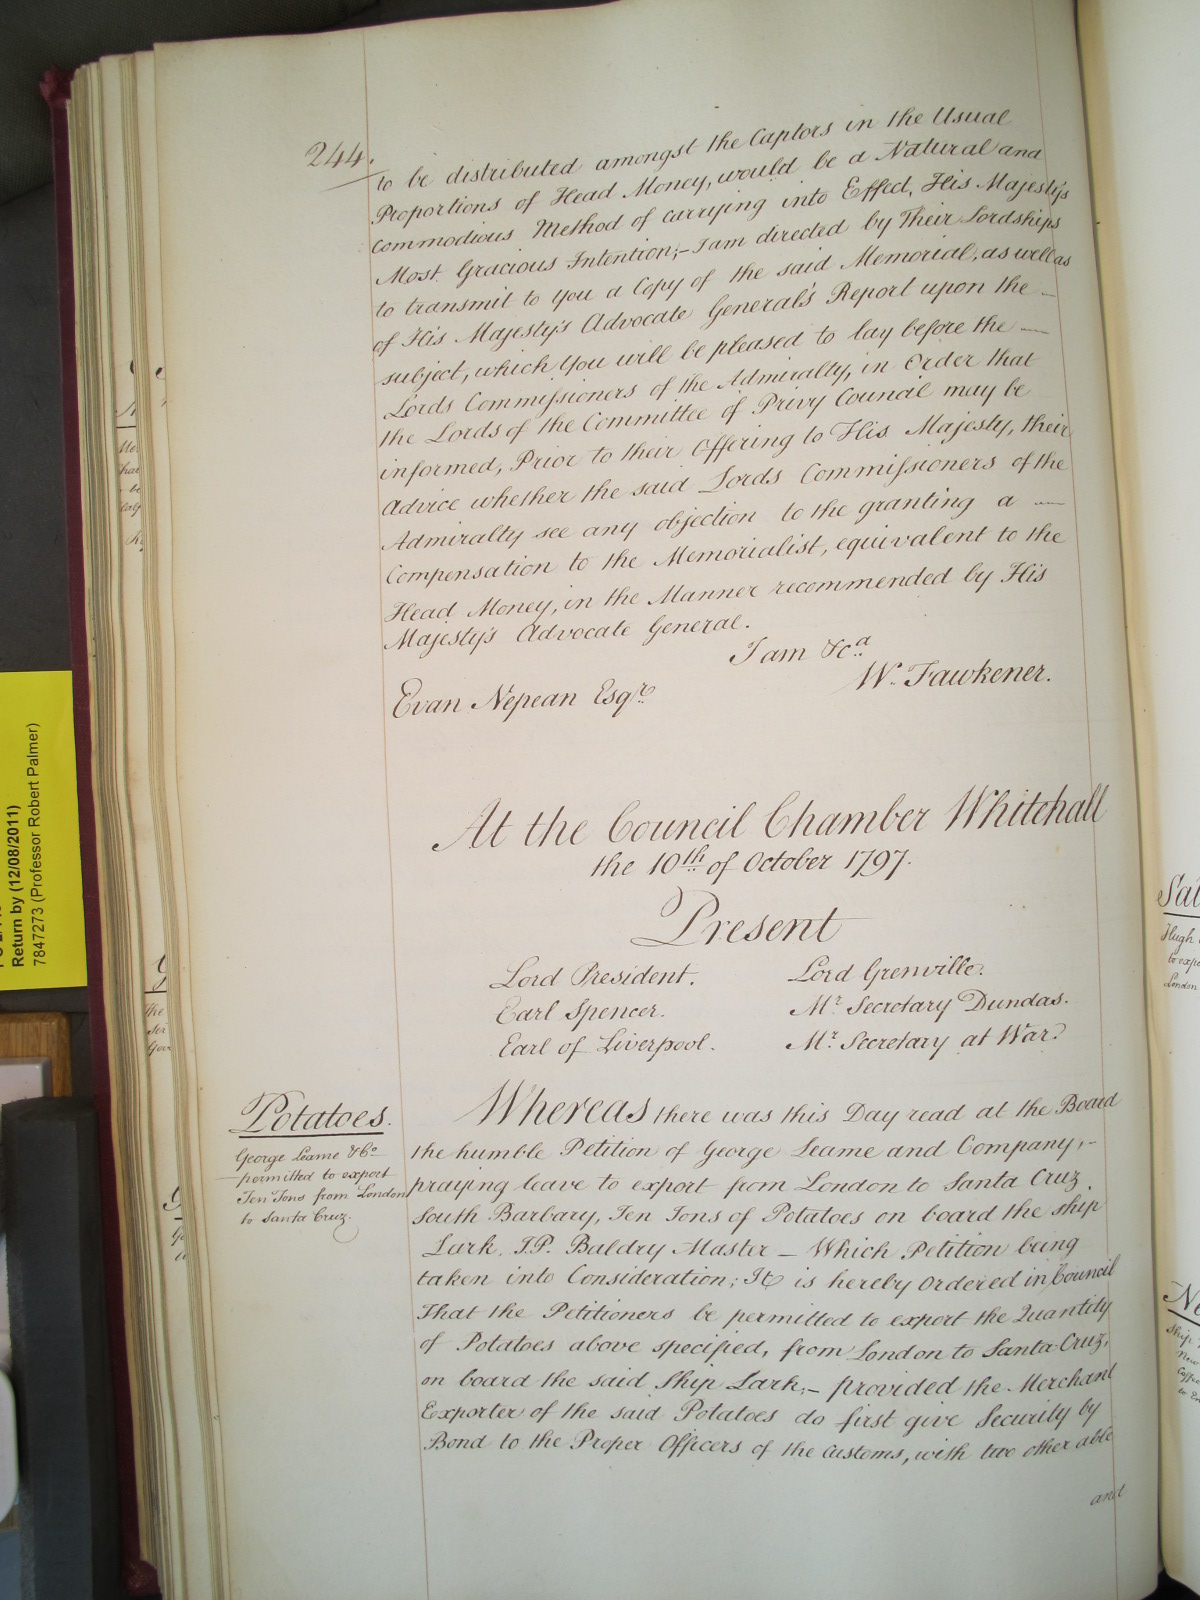 244.
to be distributed amongst the Captors in the Usual
Proportions of Head Money, would be a Natural and
commodious Method of carrying into Effect, His Majesty's
Most Gracious Intention;– I am directed by Their Lordships
to transmit to you a Copy of the said Memorial, as well as
of His Majesty's Advocate General's Report upon the —
subject, which You will be pleased to lay before the —
Lords Commissioners of the Admiralty, in Order that
the Lords of the Committee of Privy Council may be
informed, Prior to their Offering to His Majesty, their
Advice whether the said Lords Commissioners of the
Admiralty see any objection to the granting a —
Compensation to the Memorialist, equivalent to the
Head Money, in the Manner recommended by His
Majesty's Advocate General.
I am &c.a
W. Fawkener.
Evan Nepean Esqr.
At the Council Chamber Whitehall
the 10th of October 1797.
Present
Lord President. Lord Grenville.
Earl Spencer. Mr. Secretary Dundas.
Earl of Liverpool. Mr. Secretary at War.
Potatoes.
George Leame & Co
permitted to export
Ten Tons from London
to Santa Cruz.
Whereas there was this Day read at the Board
the humble Petition of George Leame and Company,–
praying leave to export from London to Santa Cruz.
South Barbary, Ten Tons of Potatoes on board the ship
Lark, J.P. Baldry Master — Which Petition being
taken into Consideration; It is hereby Ordered in Council
That the Petitioners be permitted to export the Quantity
of Potatoes above specified, from London to Santa Cruz,
on board the said Ship Lark;– provided the Merchant
Exporter of the said Potatoes do first give Security by
Bond to the Proper Officers of the Customs, with two other able
and
Return by (12/08/2011)
7847273 (Professor Robert Palmer)